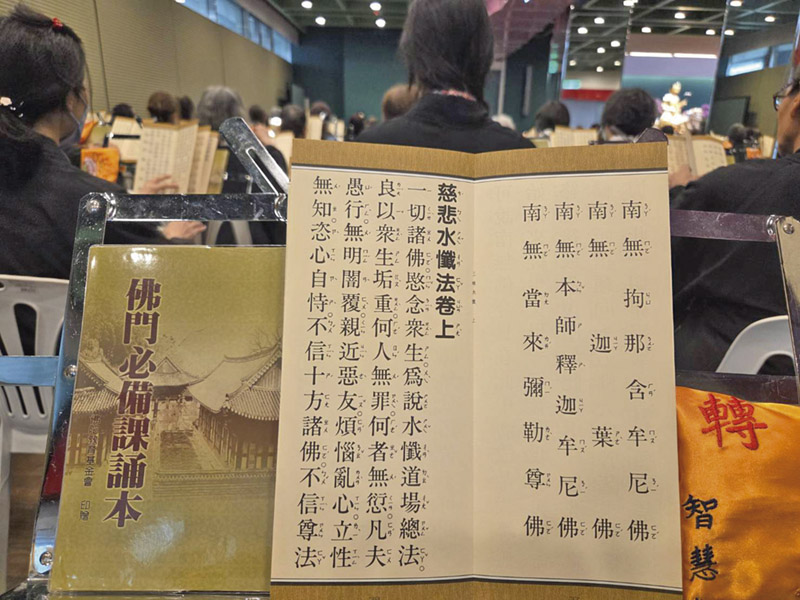 南無拘那含牟尼佛
南無迦葉佛
南無本師釋迦牟尼佛
南無當來彌勒尊佛
慈悲水懺法卷上
一切諸佛愍念衆生爲說水懺道場總法
良以衆生垢重何人無罪何者無愆凡夫
愚行無明闇覆親近惡友煩惱亂心立性
無知恣心自恃不信十方諸佛不信尊法
佛門必備課誦本
基金會 印贈
轉
智慧